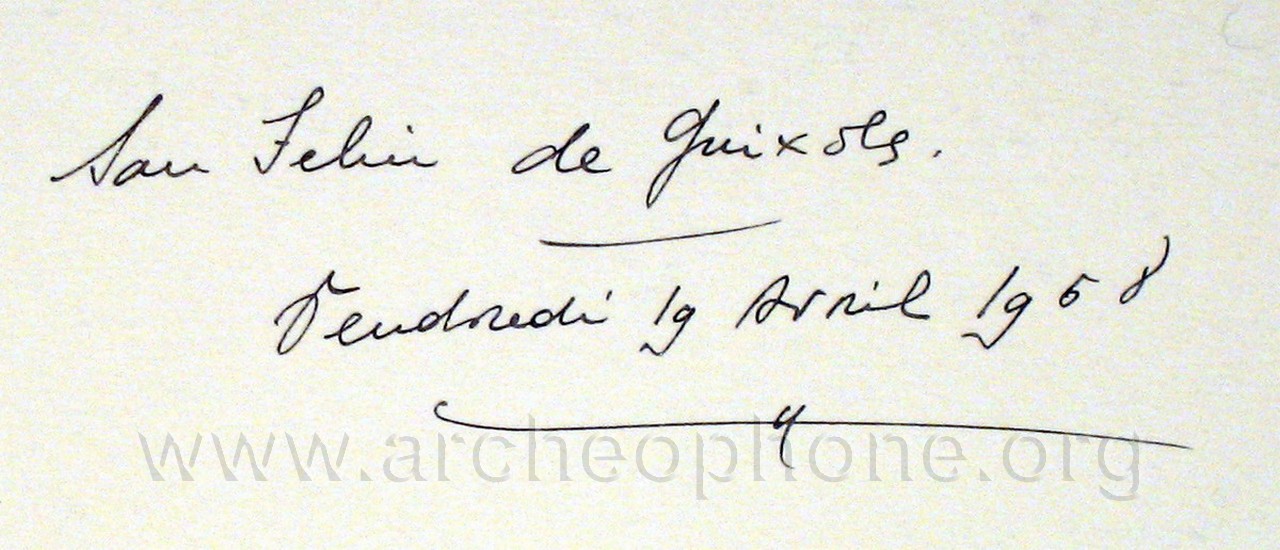 San Feliu de Guixols.
Vendredi 19 Avril 1968
www.archeophone.org